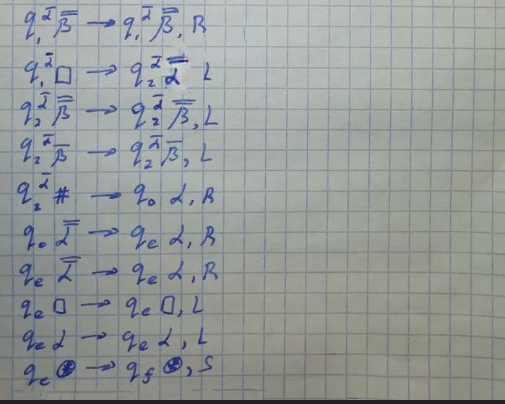 q₁^ᾱ β̿ → q₁^ᾱ β̿, R
q₁^ᾱ □ → q₂^ᾱ α̿ L
q₂^ᾱ β̿ → q₂^ᾱ β̿, L
q₂^ᾱ β̄ → q₂^ᾱ β̄, L
q₂^ᾱ # → q₀ α, R
q₀ α̿ → qₑ α, R
qₑ α̿ → qₑ α, R
qₑ □ → qₑ □, L
qₑ α → qₑ α, L
qₑ ⊛ → q_f ⊛, S